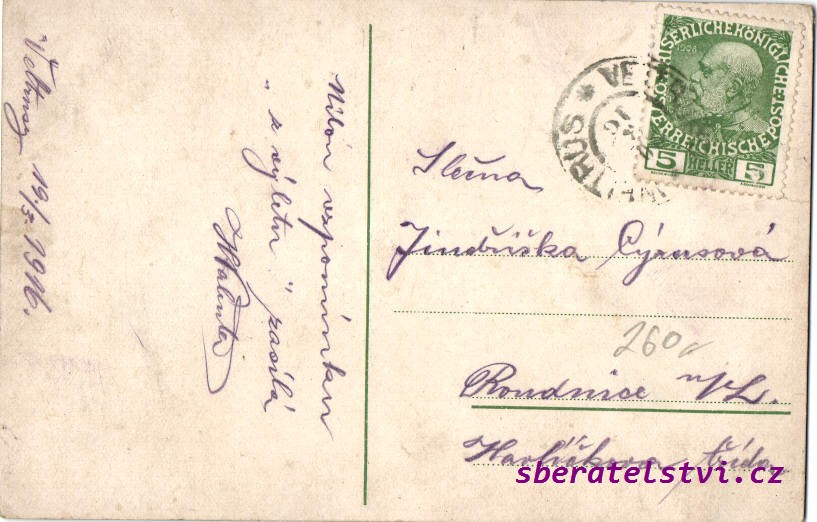 Veltrusy 19./5. 1916.
Milou vzpomínku
„z výletu“ zasílá
KAISERLICHE KÖNIGLICHE ÖSTERREICHISCHE POST
1908
5 HELLER 5
VELTRUS
Slečna
Jindřiška Cýrusová
260
Roudnice n/L.
Havlíčkova třída
sberatelstvi.cz